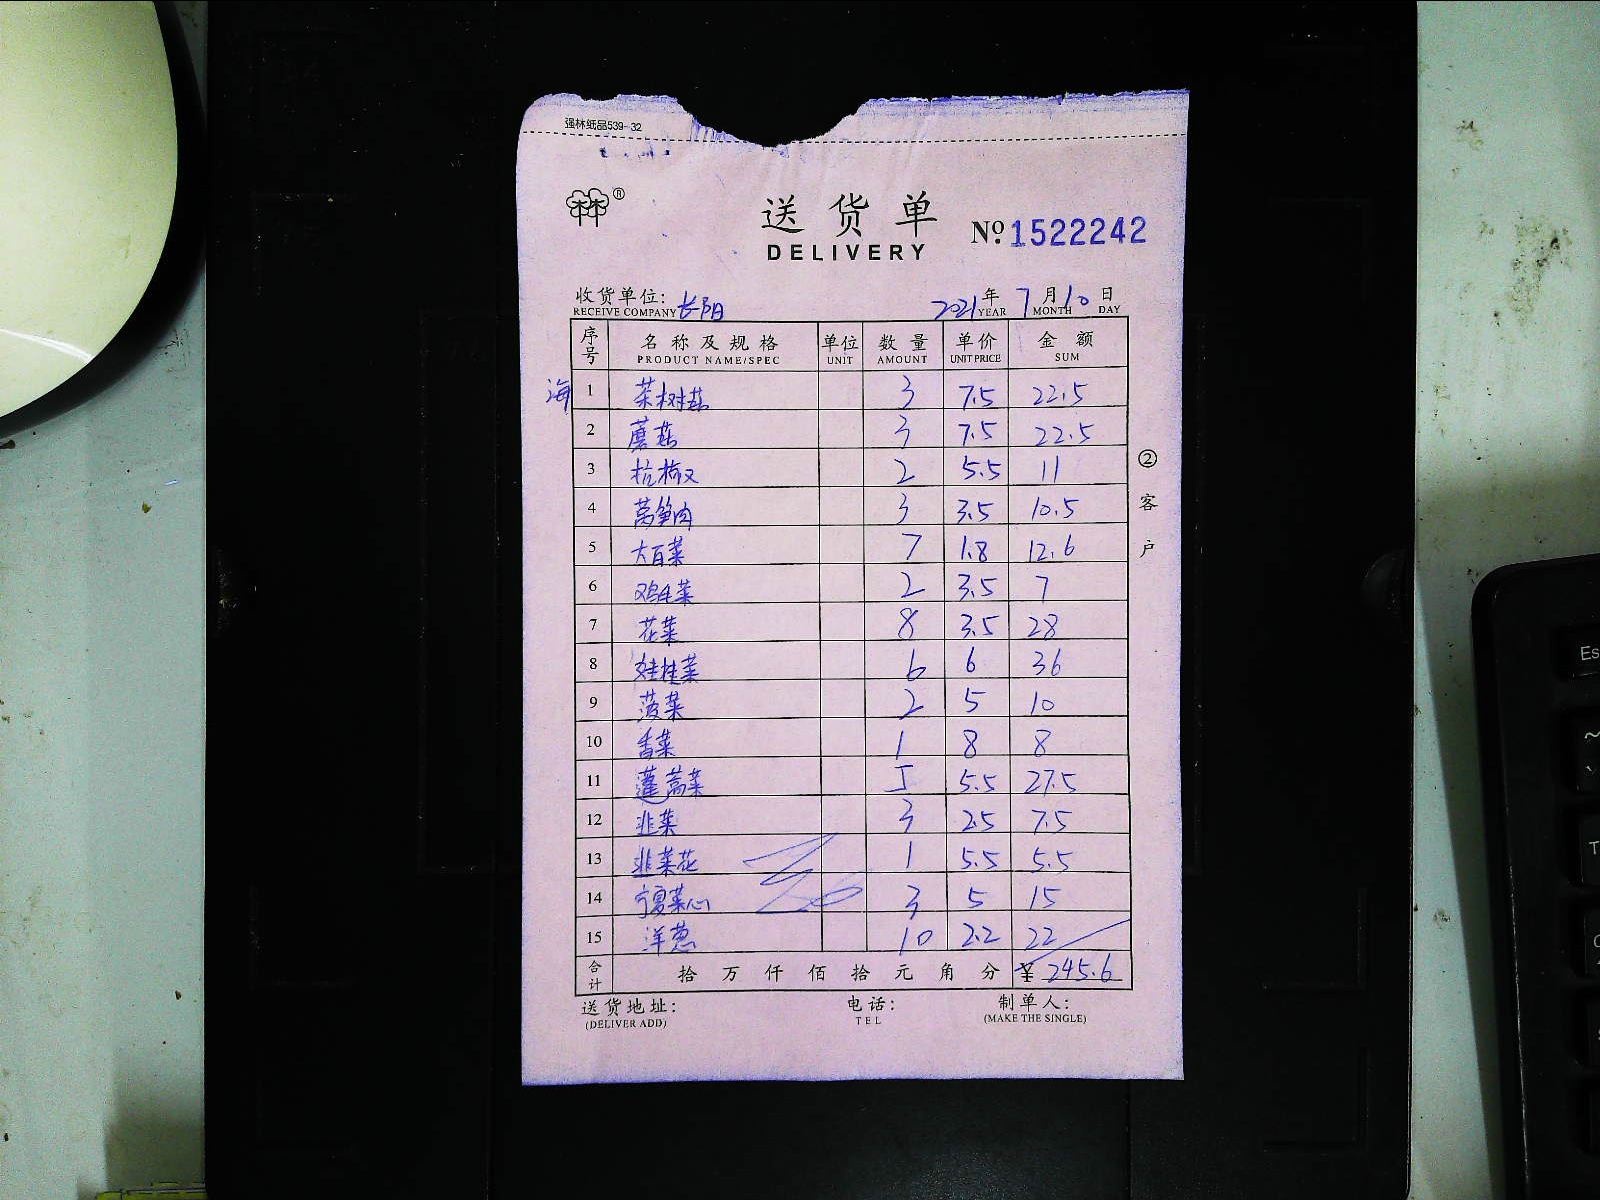 强林纸品539-32
® 送货单 №1522242
DELIVERY
收货单位: 长阳 2021年7月10日
RECEIVE COMPANY YEAR MONTH DAY
序号 名称及规格 单位 数量 单价 金额
PRODUCT NAME/SPEC UNIT AMOUNT UNIT PRICE SUM
海 1 茶树菇 3 7.5 22.5
2 蘑菇 3 7.5 22.5
3 杭椒 2 5.5 11
4 莴笋肉 3 3.5 10.5
5 大百菜 7 1.8 12.6
6 鸡毛菜 2 3.5 7
7 花菜 8 3.5 28
8 娃娃菜 6 6 36
9 菠菜 2 5 10
10 香菜 1 8 8
11 蓬蒿菜 5 5.5 27.5
12 韭菜 3 2.5 7.5
13 韭菜花 1 5.5 5.5
14 宁夏菜心 3 5 15
15 洋葱 10 2.2 22
合计 拾万仟佰拾元角分 ¥ 245.6
送货地址: 电话: 制单人:
(DELIVER ADD) TEL (MAKE THE SINGLE)
②客户
Es